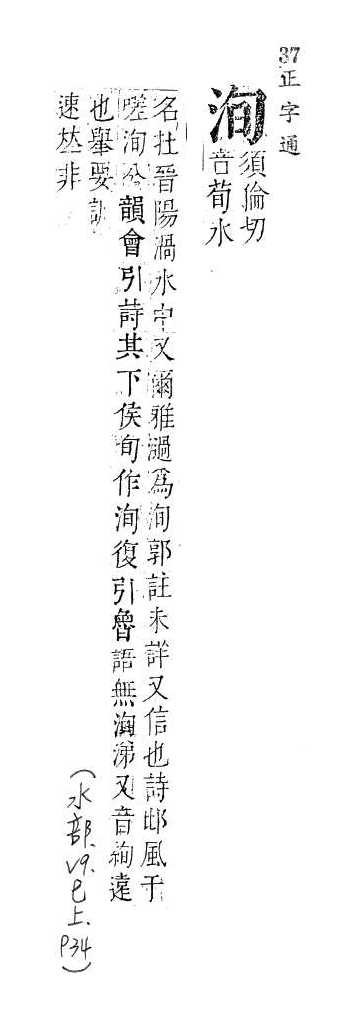 37正字通
洵 須倫切
音荀水
名在晉陽渦水中又爾雅濄為洵郭註未詳又信也詩邶風于
嗟洵兮韻會引詩其下侯旬作洵復引魯語無洵涕又音絢遠
也舉要訓
速𠀤非
(水部.v9.巳上.P34)